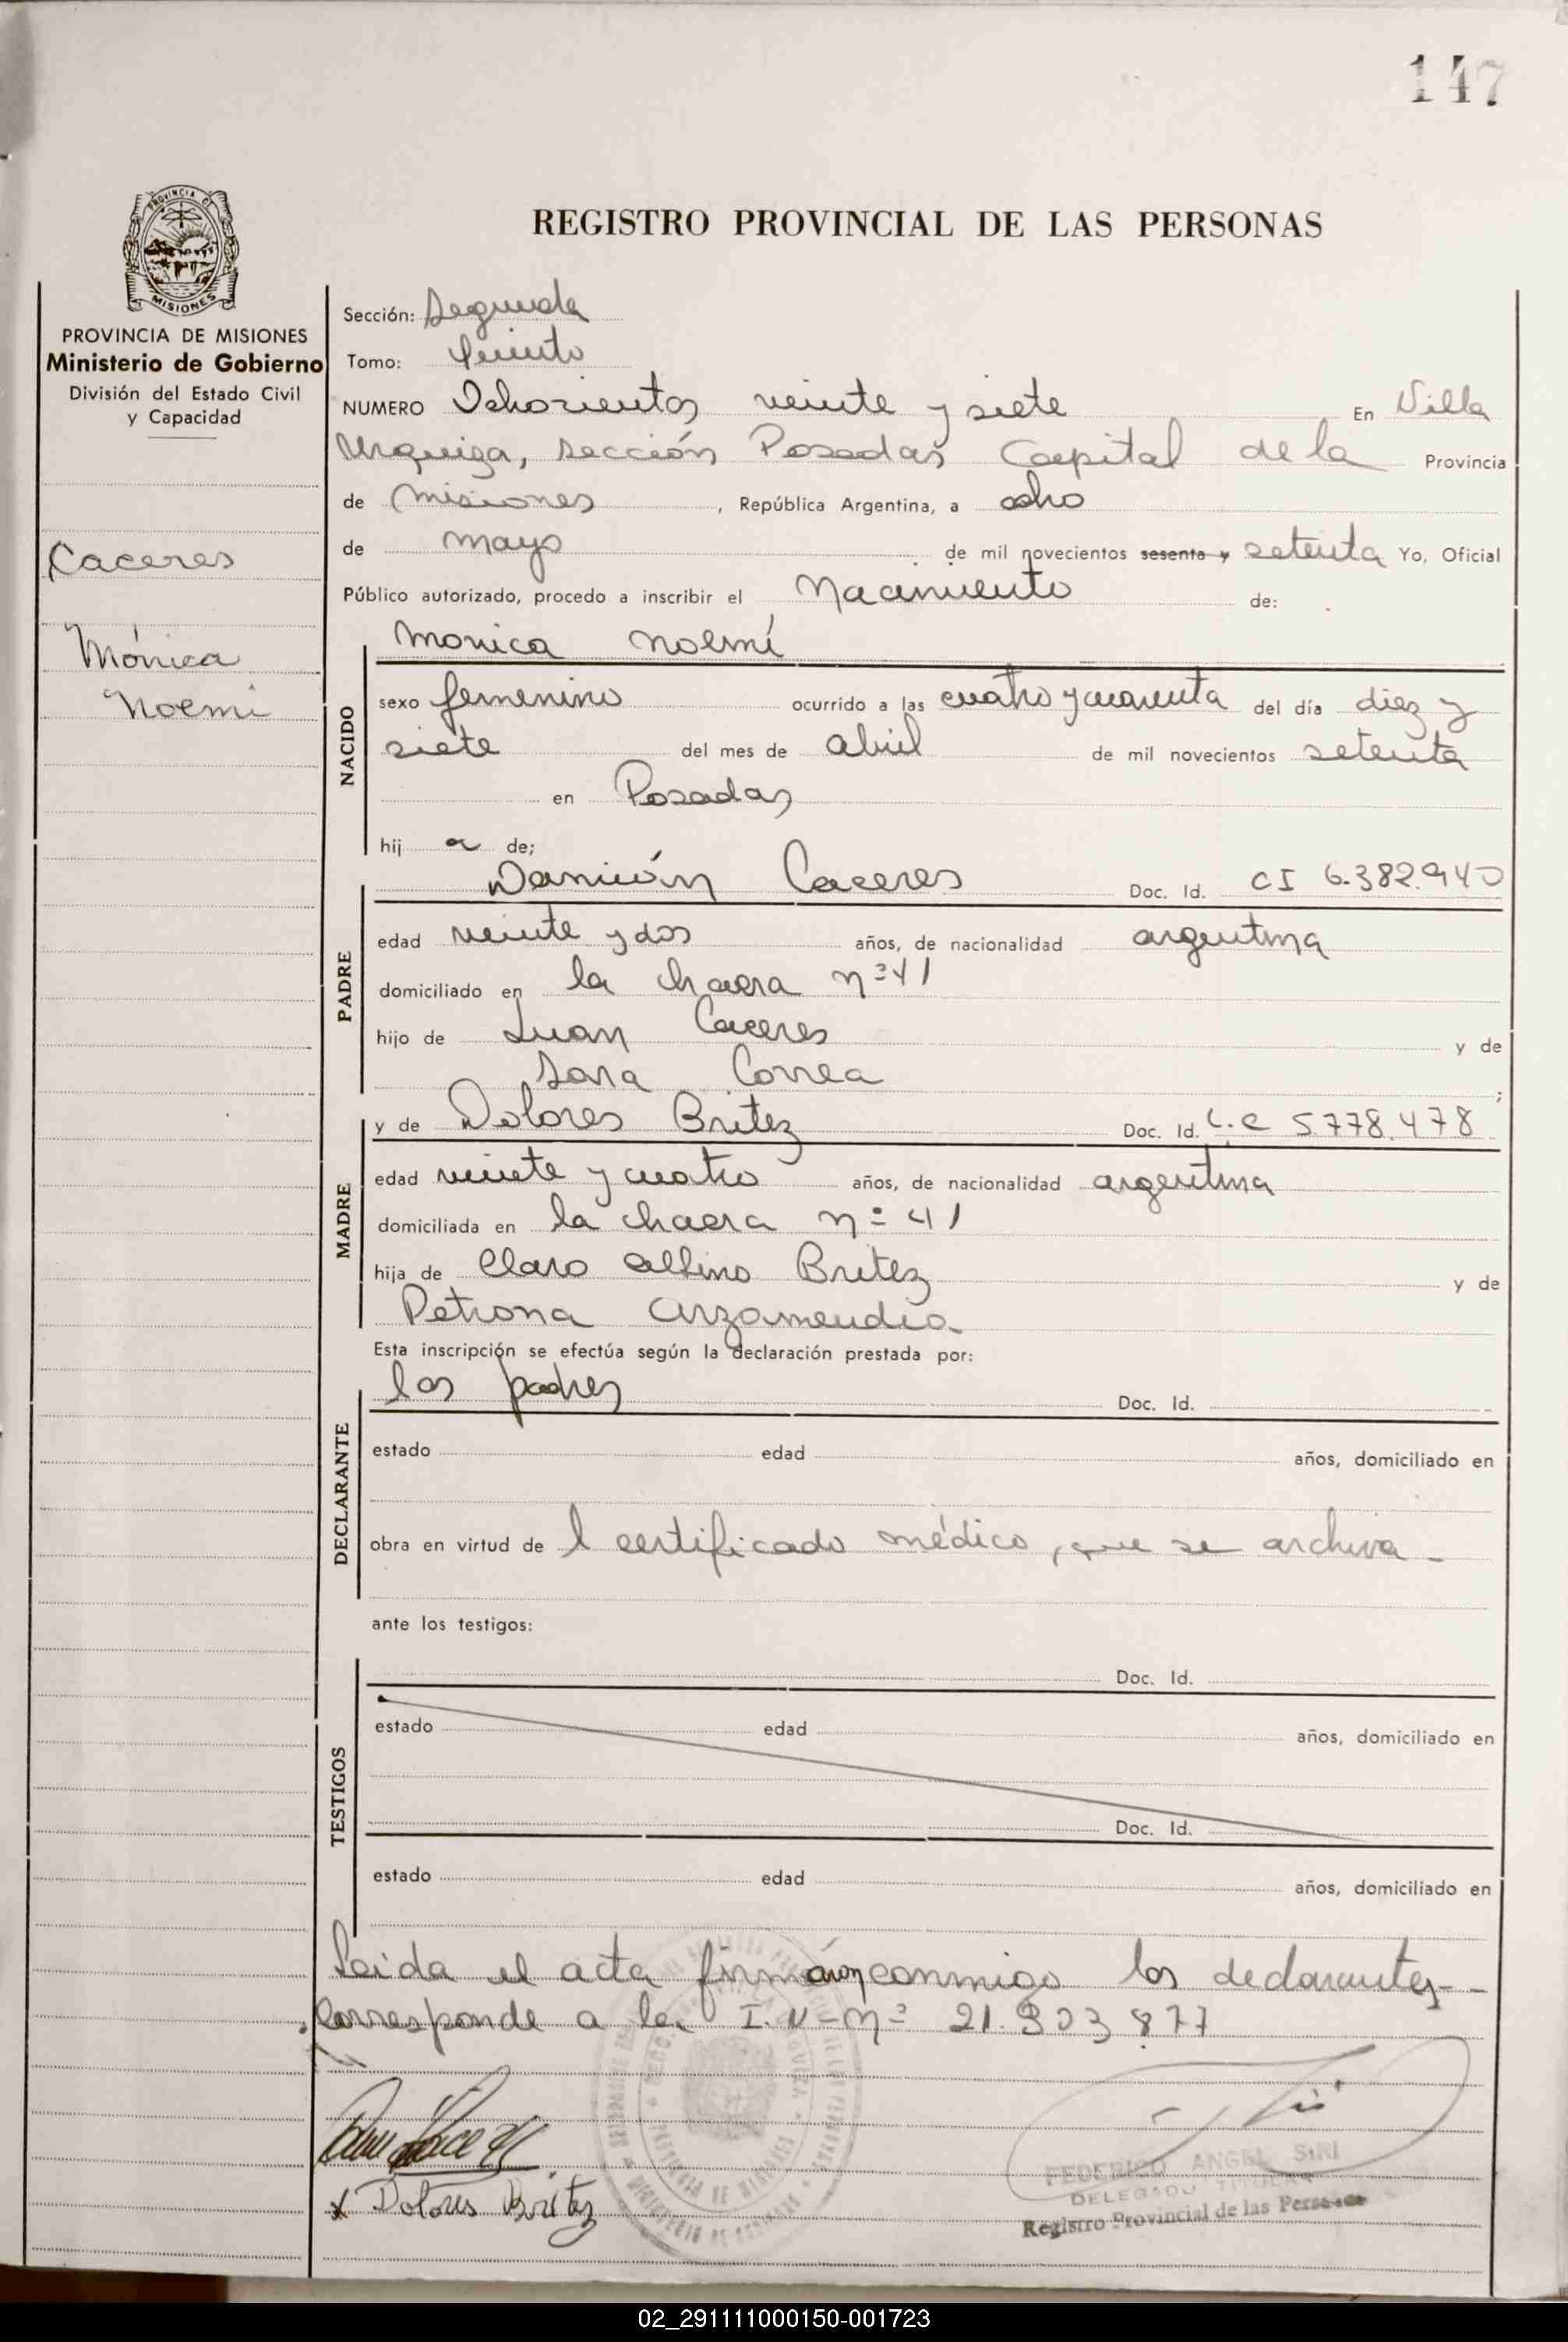 147
PROVINCIA DE MISIONES
PROVINCIA DE MISIONES
Ministerio de Gobierno
División del Estado Civil
y Capacidad
Caceres
Mónica
Noemi
REGISTRO PROVINCIAL DE LAS PERSONAS
Sección: Segunda
Tomo: Quinto
NUMERO Ochocientos veinte y siete En Villa
Urquiza, sección Posadas Capital de la Provincia
de Misiones, República Argentina, a ocho
de mayo de mil novecientos sesenta y setenta Yo, Oficial
Público autorizado, procedo a inscribir el Nacimiento de:
Monica Noemí
NACIDO
sexo femenino ocurrido a las cuatro y cuarenta del día diez y
siete del mes de abril de mil novecientos setenta
en Posadas
hij a de;
Damián Caceres Doc. Id. CI 6.382.940
PADRE
edad veinte y dos años, de nacionalidad argentina
domiciliado en la chacra nº 41
hijo de Juan Caceres y de
Sara Correa ;
y de Dolores Britez Doc. Id. L.C 5.778.478
MADRE
edad veinte y cuatro años, de nacionalidad argentina
domiciliada en la chacra nº 41
hija de Claro Albino Britez y de
Petrona Arzamendia
Esta inscripción se efectúa según la declaración prestada por:
los padres Doc. Id.
DECLARANTE
estado edad años, domiciliado en
obra en virtud de l certificado médico, que se archiva -
ante los testigos:
Doc. Id.
TESTIGOS
estado edad años, domiciliado en
Doc. Id.
estado edad años, domiciliado en
Leida el acta firmáron conmigo los declarantes--
Corresponde a la I. N- nº 21.303.877
Dolores Britez
FEDERICO ANGEL SIRI
DELEGADO TITULAR
Registro Provincial de las Personas
02_291111000150-001723